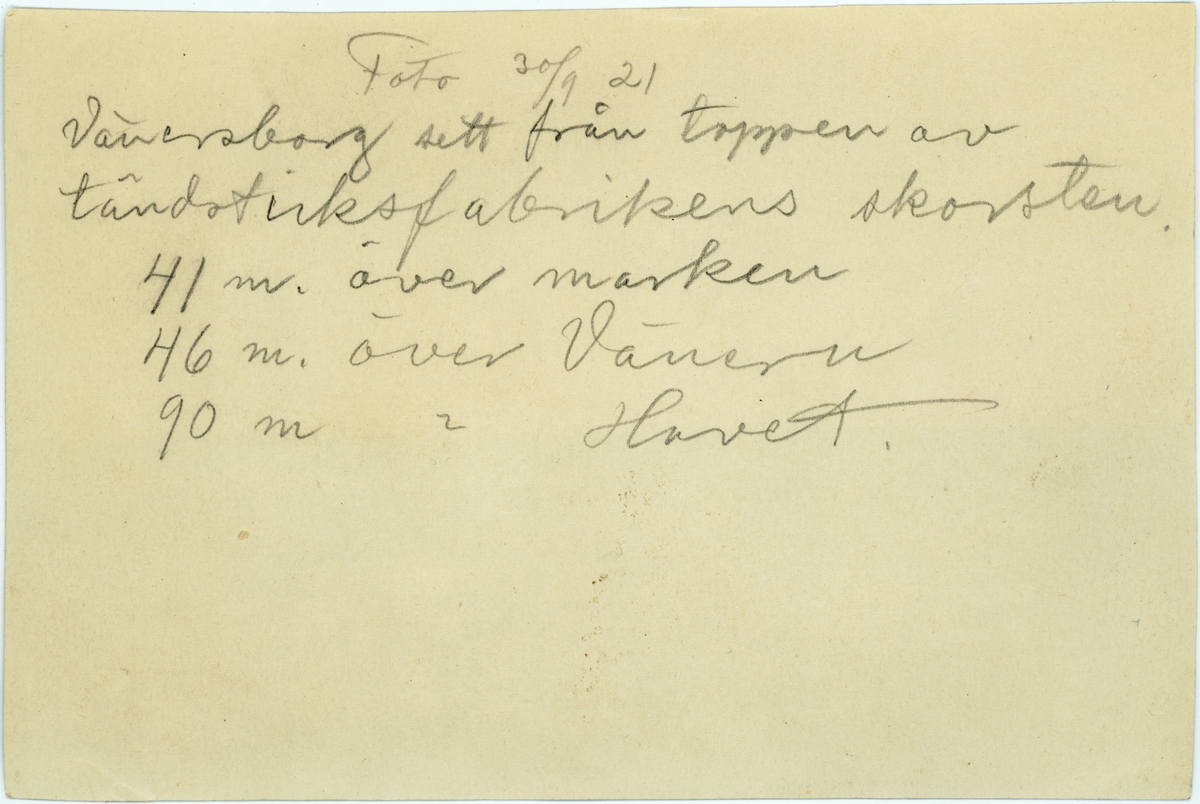 Foto 30/9 21
Vänersborg sett från toppen av
tändstiksfabrikens skorsten.
41 m. över marken
46 m. över Vänern
90 m " Havet.